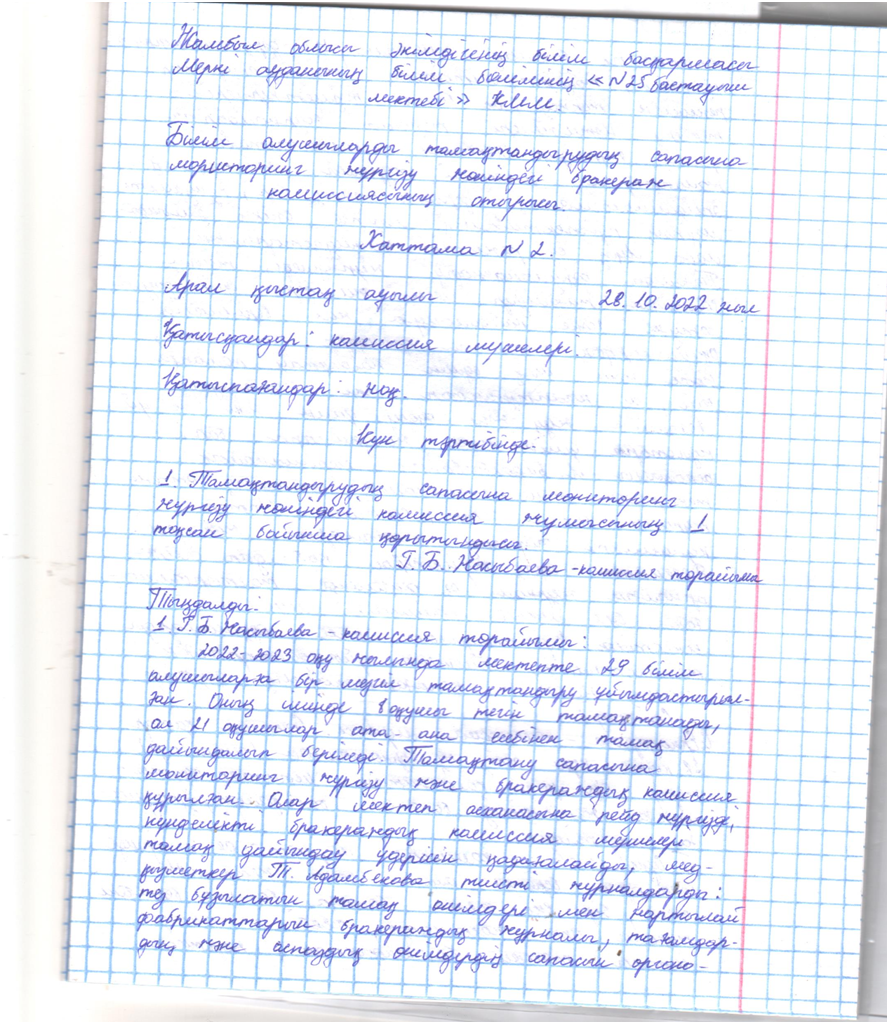 Жамбыл облысы әкімдігінің білім басқармасы
Меркі ауданының білім бөлімінің «N25 бастауыш
мектебі» КММ.
Білім алушыларды тамақтандырудың сапасына
мониторинг жүргізу жөніндегі бракераж
комиссиясының отырысы.
Хаттама N 2.
Арал қыстақ ауылы 28.10.2022 жыл
Қатысқандар: комиссия мүшелері.
Қатыспағандар: жоқ.
Күн тәртібінде:
1 Тамақтандырудың сапасына мониторинг
жүргізу жөніндегі комиссия жұмысының 1
тоқсан бойынша қорытындысы.
Г. Б. Насыбаева - комиссия төрайымы
Тыңдалды:
1 Г. Б. Насыбаева - комиссия төрайымы:
2022-2023 оқу жылында мектепте 29 білім
алушыларға бір мезгіл тамақтандыру ұйымдастырыл-
ған. Оның ішінде 8 оқушы тегін тамақтанады,
ал 21 оқушылар ата-ана есебінен тамақ
дайындалып беріледі. Тамақтану сапасына
мониторинг жүргізу және бракераждық комиссия
құрылған. Олар мектеп асханасына рейд жүргізді,
күнделікті бракераждық комиссия мүшелері
тамақ дайындау үдерісін қадағалайды, мед-
қызметкер Т. Адамбекова тиісті журналдарды:
тез бұзылатын тамақ өнімдері мен жартылай
фабрикаттарын бракераждық журналы, тағамдар-
дың және аспаздық өнімдердің сапасын органо-